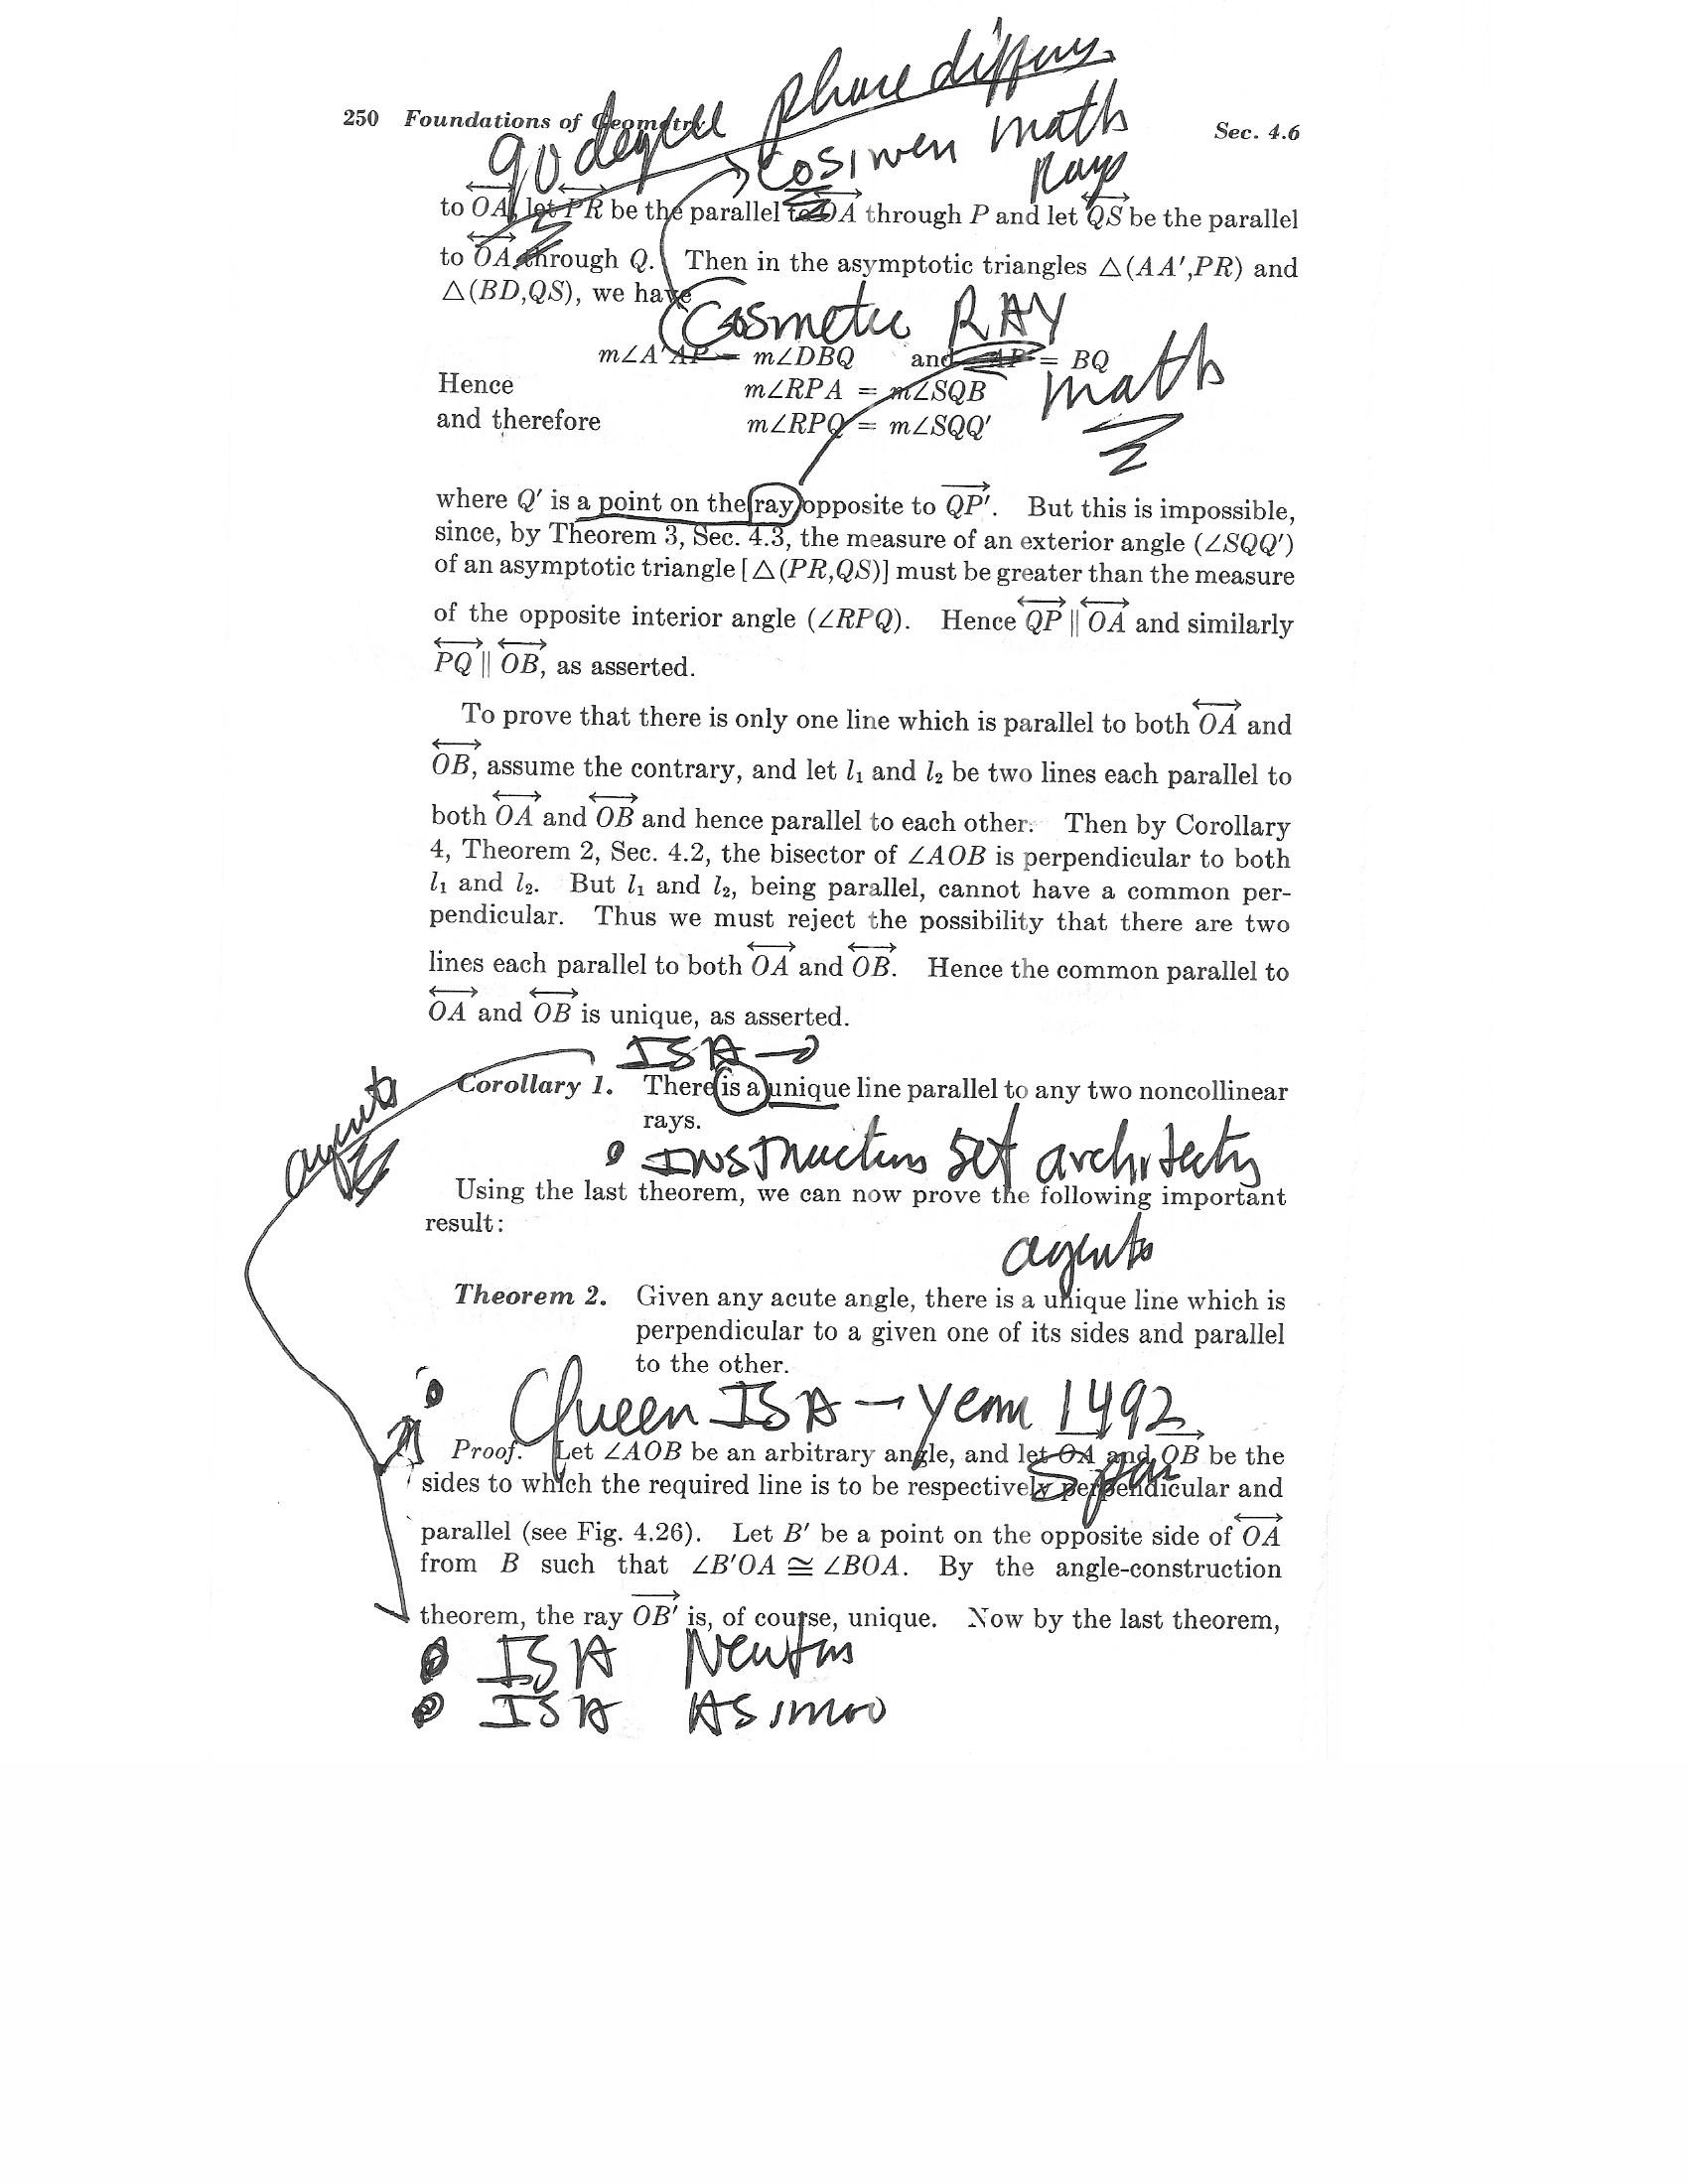 90 degree phase diffens.
250 Foundations of Geometry Sec. 4.6
Cosinen math
Rays
to OA, let PR be the parallel to OA through P and let QS be the parallel
to OA through Q. Then in the asymptotic triangles △(AA′,PR) and
△(BD,QS), we have
Cosmetic RAY
math
m∠A′AP = m∠DBQ and AP = BQ
Hence m∠RPA = m∠SQB
and therefore m∠RPQ = m∠SQQ′
where Q′ is a point on the ray opposite to QP′. But this is impossible,
since, by Theorem 3, Sec. 4.3, the measure of an exterior angle (∠SQQ′)
of an asymptotic triangle [△(PR,QS)] must be greater than the measure
of the opposite interior angle (∠RPQ). Hence QP ∥ OA and similarly
PQ ∥ OB, as asserted.
To prove that there is only one line which is parallel to both OA and
OB, assume the contrary, and let l₁ and l₂ be two lines each parallel to
both OA and OB and hence parallel to each other. Then by Corollary
4, Theorem 2, Sec. 4.2, the bisector of ∠AOB is perpendicular to both
l₁ and l₂. But l₁ and l₂, being parallel, cannot have a common per-
pendicular. Thus we must reject the possibility that there are two
lines each parallel to both OA and OB. Hence the common parallel to
OA and OB is unique, as asserted.
ISA →
agents
Corollary 1. There is a unique line parallel to any two noncollinear
rays.
Instructins set architecty
Using the last theorem, we can now prove the following important
result:
agents
Theorem 2. Given any acute angle, there is a unique line which is
perpendicular to a given one of its sides and parallel
to the other.
Queen ISA – Year 1492
Proof. Let ∠AOB be an arbitrary angle, and let OA and OB be the
sides to which the required line is to be respectively perpendicular and
parallel (see Fig. 4.26). Let B′ be a point on the opposite side of OA
from B such that ∠B′OA ≅ ∠BOA. By the angle-construction
theorem, the ray OB′ is, of course, unique. Now by the last theorem,
ISA Newton
ISA Asimov